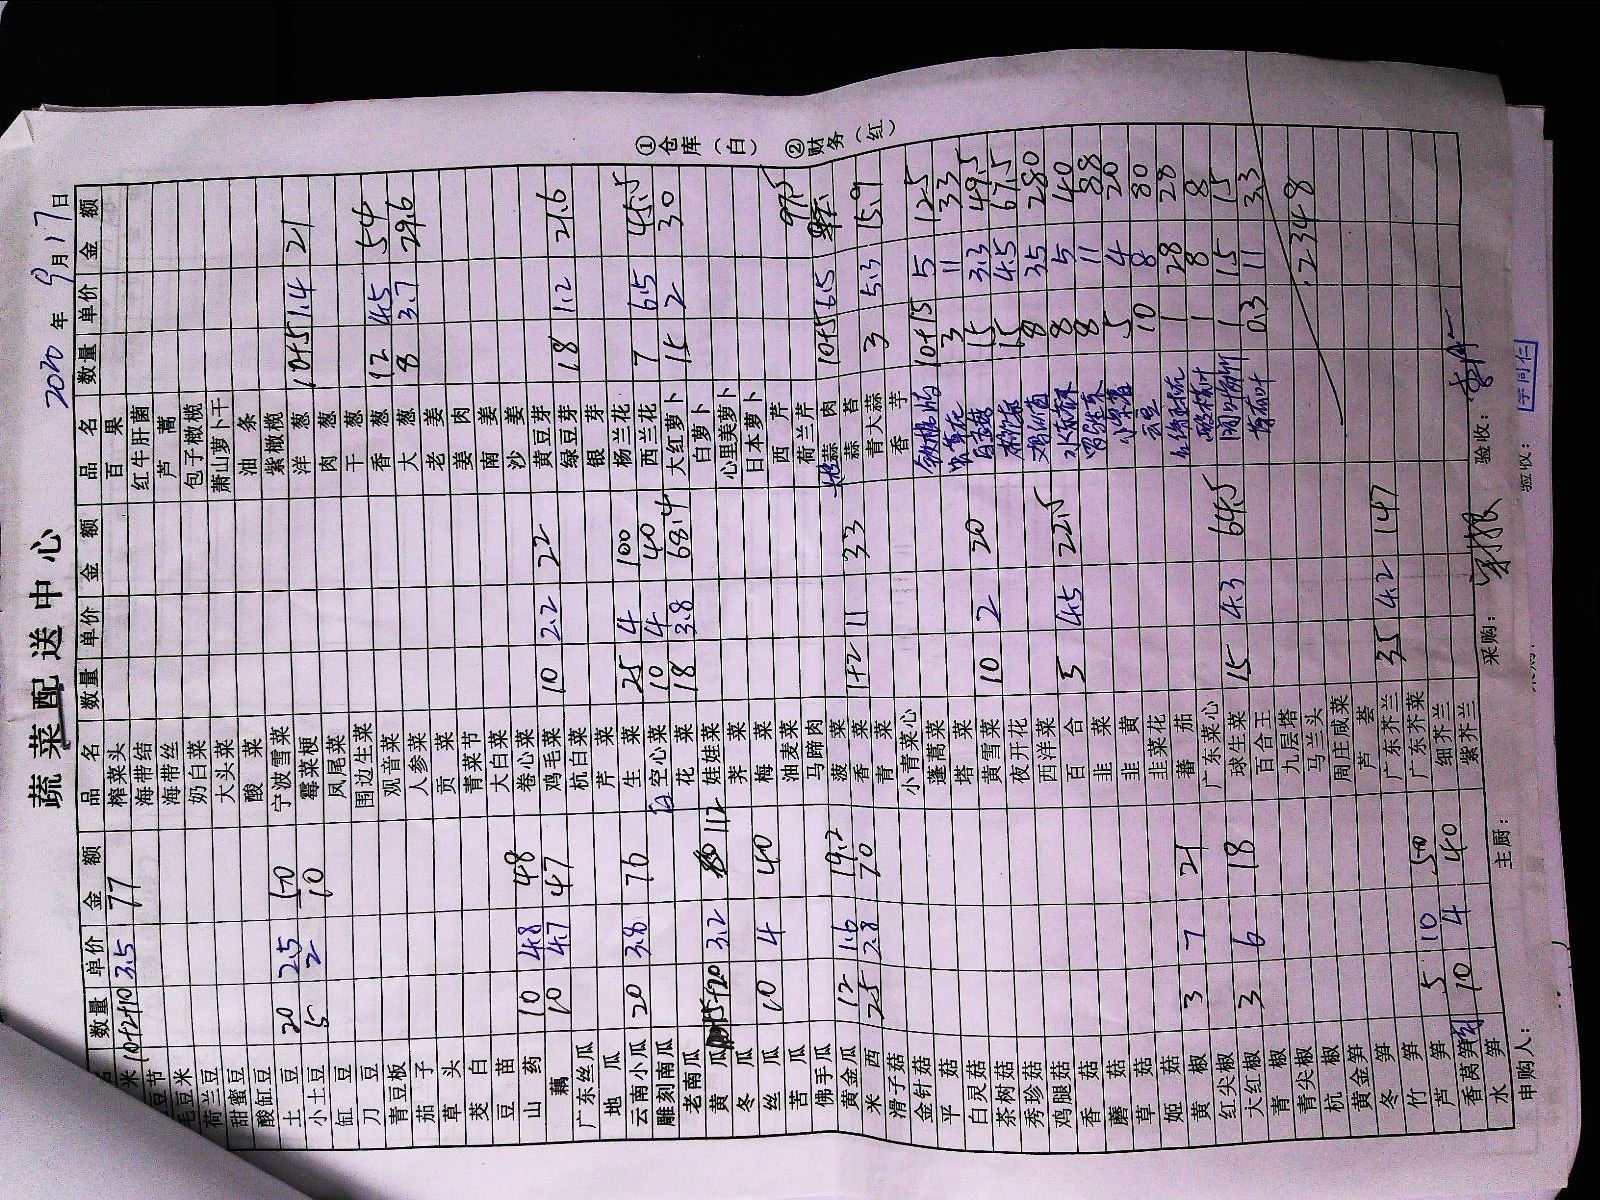 蔬菜配送中心
2020 年 9 月 17 日
品名 数量 单价 金额
米 10+2+10 3.5 77
豆节
毛豆米
荷兰豆
甜蜜豆
酸缸豆
土豆 20 2.5 50
小土豆 5 2 10
缸豆
刀豆
青豆板
茄子
草头
茭白
豆苗
山药 10 4.8 48
藕 10 4.7 47
广东丝瓜
地瓜
云南小瓜 20 3.8 76
雕刻南瓜
老南瓜
黄瓜 15+20 3.2 112
冬瓜
丝瓜 10 4 40
苦瓜
佛手瓜
黄金瓜 12 1.6 19.2
米西 25 2.8 70
滑子菇
金针菇
平菇
白灵菇
茶树菇
秀珍菇
鸡腿菇
香菇
蘑菇
草菇
姬菇
黄椒 3 7 21
红尖椒
大红椒 3 6 18
青椒
青尖椒
杭椒
黄金笋
冬笋
竹笋
芦笋 5 10 50
香莴笋 10 4 40
水笋
品名 数量 单价 金额
榨菜头
海带结
海带丝
奶白菜
大头菜
酸菜
宁波雪菜
霉菜梗
凤尾菜
围边生菜
观音菜
人参菜
贡菜
青菜节
大白菜
卷心菜
鸡毛菜 10 2.2 22
杭白菜
芹菜
生菜 25 4 100
空心菜 10 4 40
花菜 18 3.8 68.4
娃娃菜
荠菜
梅菜
油麦菜
马蹄肉
菠菜
香菜 1+2 11 33
青菜
小青菜心
蓬蒿菜
塔菜
黄雪菜 10 2 20
夜开花
西洋菜
百合 5 4.5 22.5
韭菜
韭黄
韭菜花
蕃茄
广东菜心
球生菜 15 4.3 64.5
百合王
九层塔
马兰头
周庄咸菜
芦荟
广东芥兰 35 4.2 147
广东芥菜
细芥兰
紫芥兰
品名 数量 单价 金额
百果
红牛肝菌
芦蒿
包子橄榄
萧山萝卜干
油条
紫橄榄
洋葱 10+5 1.4 21
肉葱
干葱
香葱 12 4.5 54
大葱 8 3.7 29.6
老姜
姜肉
南姜
沙姜
黄豆芽
绿豆芽 18 1.2 21.6
银芽
杨兰花
西兰花 7 6.5 45.5
大红萝卜 15 2 30
白萝卜
心里美萝卜
日本萝卜
西芹
荷兰芹
蒜肉 10+5 6.5 97.5
蒜苔
青大蒜 3 5.3 15.9
香芋
10+15 5 125
3 11 33
15 3.3 49.5
15 4.5 67.5
8 35 280
8 5 40
8 11 88
5 4 20
10 8 80
1 28 28
1 8 8
1 15 15
0.3 11 3.3
2348
①仓库(白) ②财务(红)
申购人: 主厨: 采购: 验收:
验收: